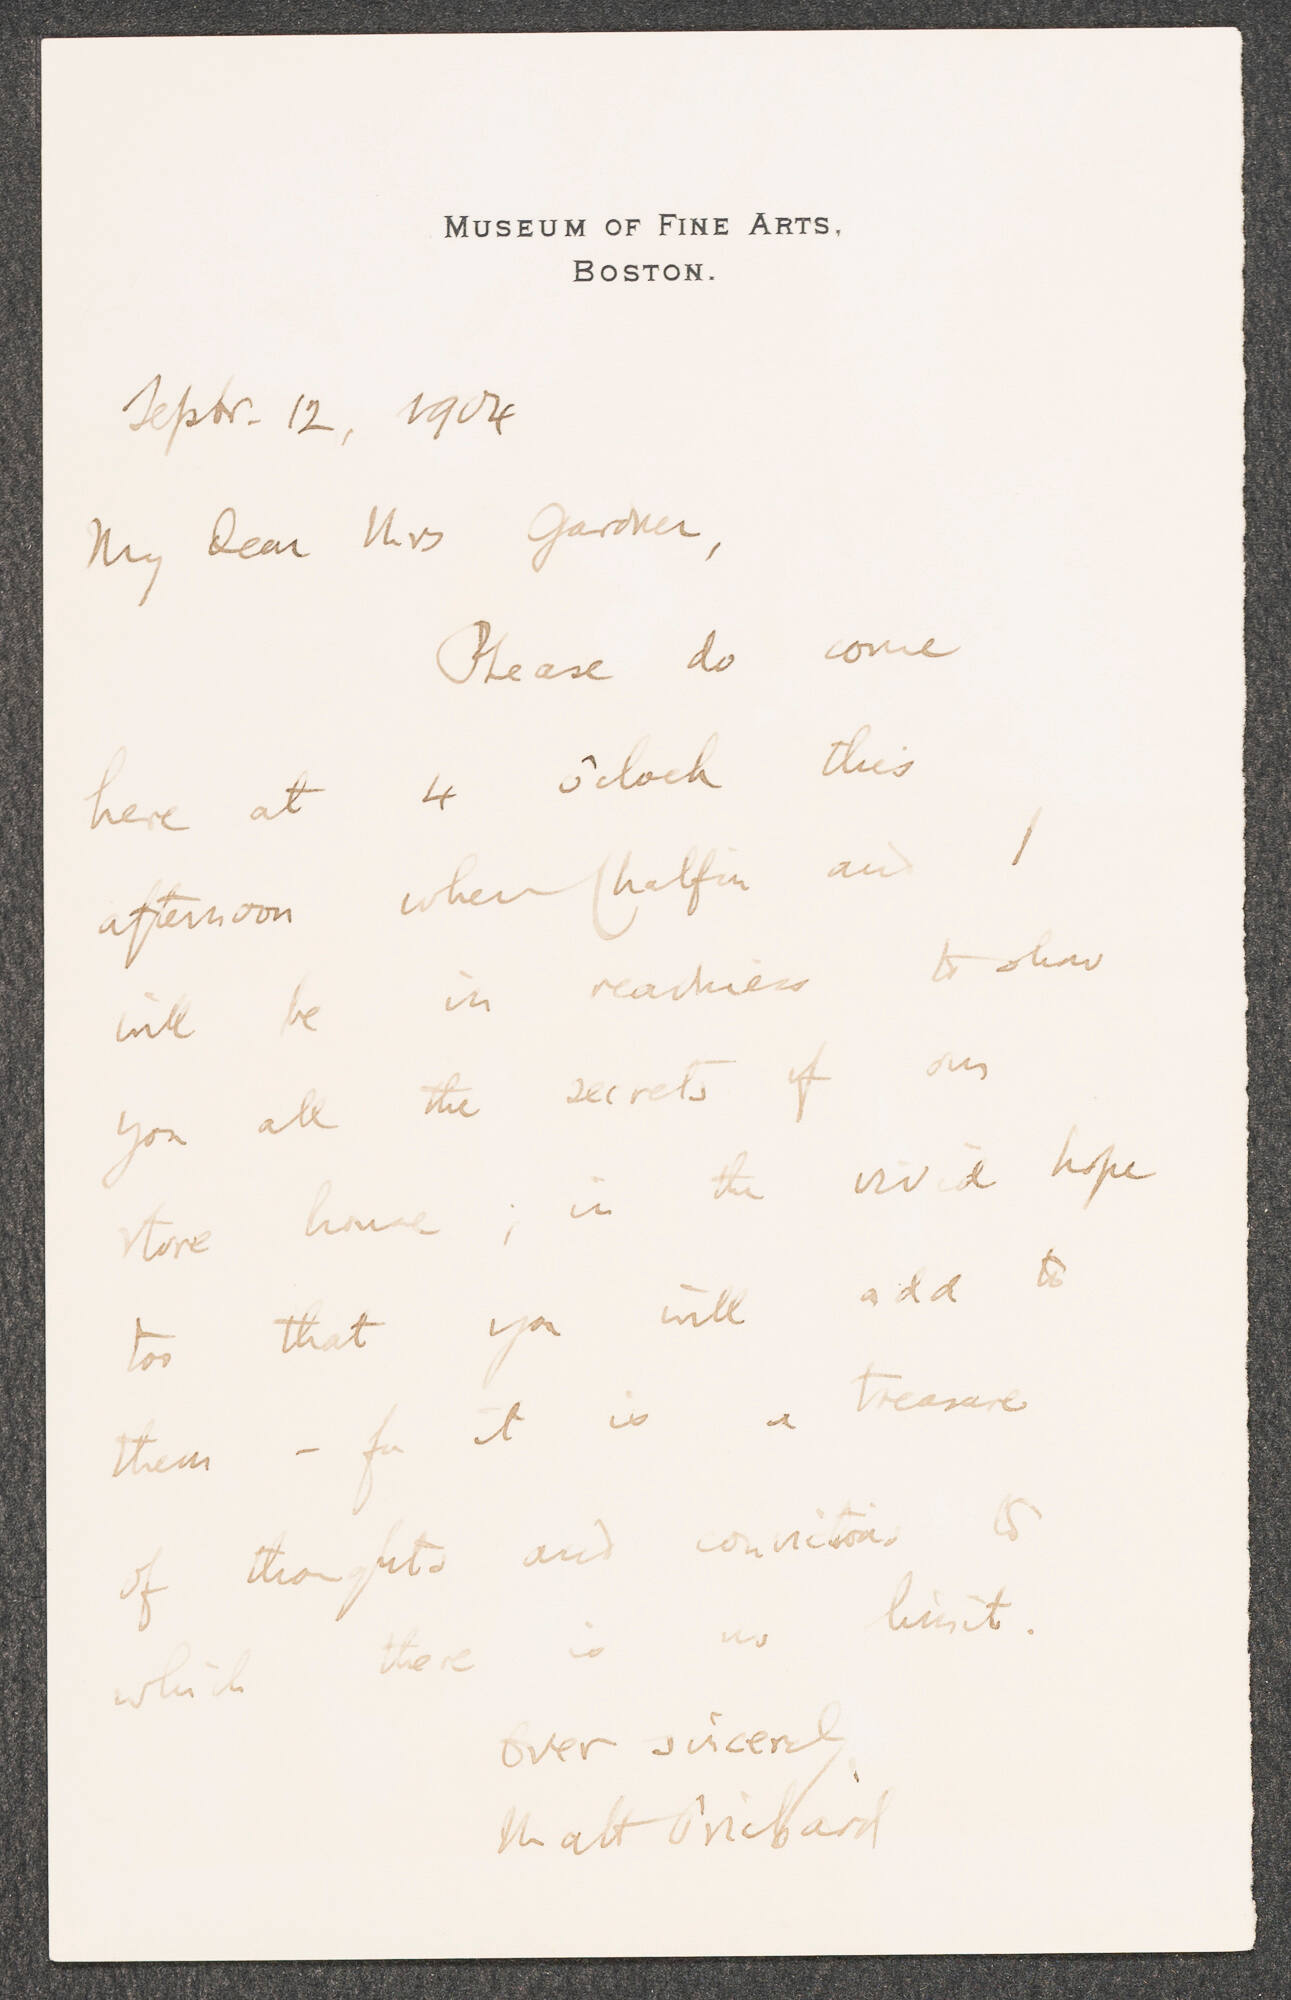 MUSEUM OF FINE ARTS,
BOSTON.
Septbr. 12, 1904
My Dear Mrs Gardner,
Please do come
here at 4 o'clock this
afternoon when Chalfin and I
will be in readiness to show
you all the secrets of our
store house ; in the vivid hope
too that you will add to
them - for it is a treasure
of thoughts and convictions to
which there is no limit.
Ever sincerely,
Matt Prichard